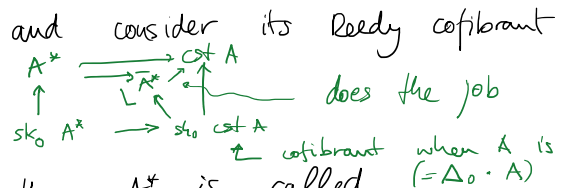 and consider its Reedy cofibrant
A* cst A
Ā*
does the job
sk₀ A* sk₀ cst A
cofibrant when A is
(= Δ₀ · A)
A* is called